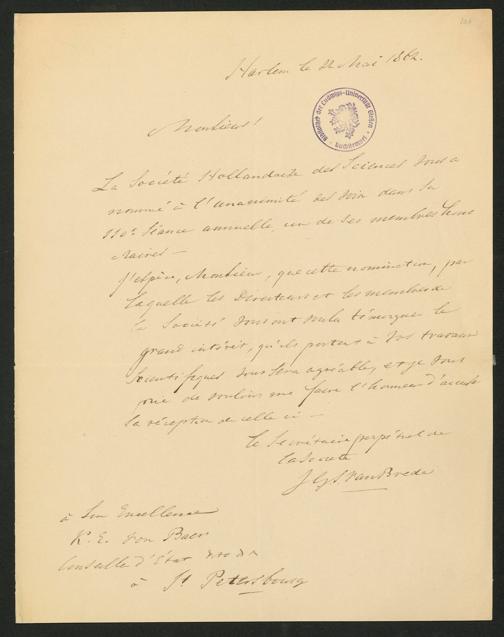 Harlem le 22 Mai 1862.
Bibliothek der Ludwigs-Universität Gießen
Monsieur!
La Société Hollandaise des Sciences vous a
nommé à l'unanimité des voix dans sa
110e Séance annuelle, un de ses membres hono
raires —
J'espère, Monsieur, que cette nomination, par
laquelle les Directeurs et les membres de
la Société vous ont voulu témoigner le
grand intérêt, qu'ils portent à vos travaux
Scientifiques vous sera agréable, et je vous
prie de vouloir me faire l'honneur d'accuser
la réception de celle ci —
le Secrétaire perpétuel de
la Société
J G S. Van Breda
à Son Excellence
K. E. von Baer
Conseille d'Etat
à St Petersbourg